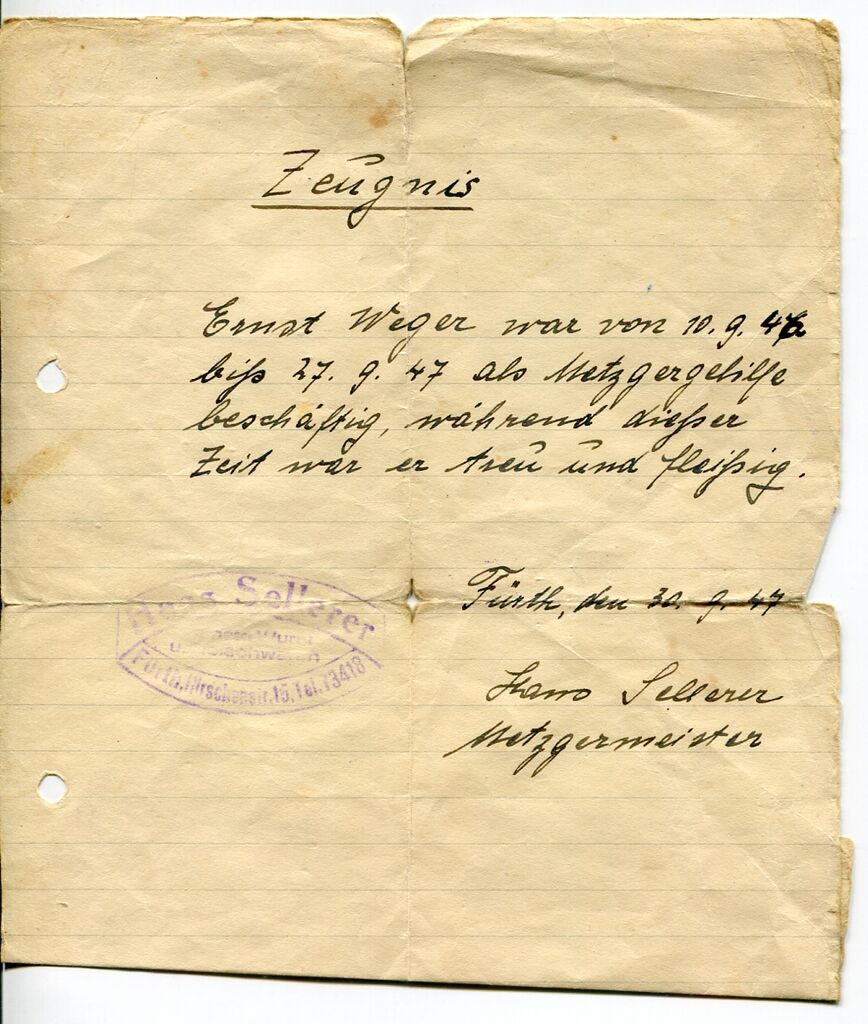 Zeugnis
Ernst Weger war von 10. 9. 46
biß 27. 9. 47 als Metzgergehilfe
beschäftig, während dießer
Zeit war er treu und fleißig.
Fürth, den 30. 9. 47
Hans Sellerer
Fürth, Hirschenstr. 15, Tel. 73418
Hans Sellerer
Metzgermeister